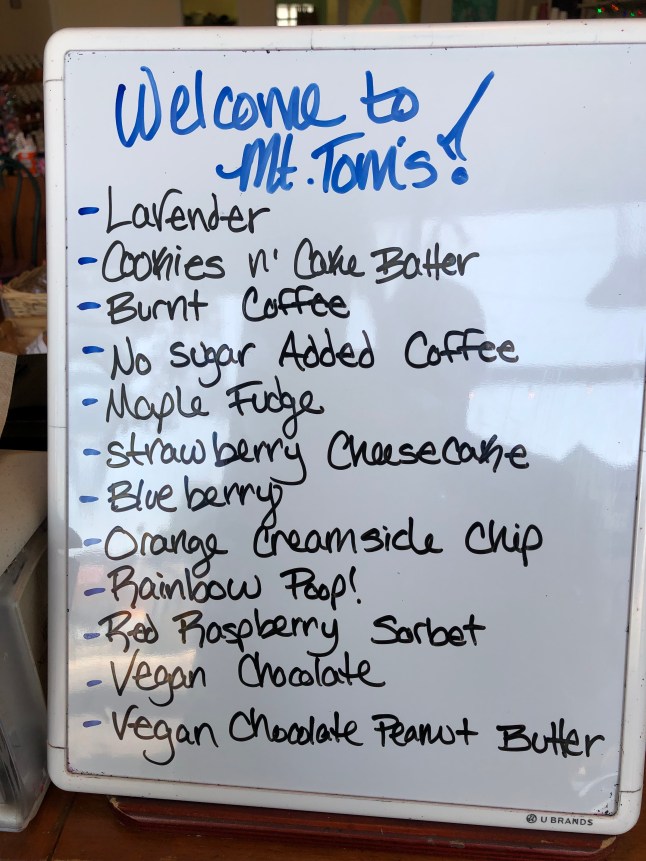 Welcome to
Mt. Tom's!
- Lavender
- Cookies n' Cake Batter
- Burnt Coffee
- No sugar Added Coffee
- Maple Fudge
- Strawberry Cheesecake
- Blueberry
- Orange Creamsicle Chip
- Rainbow Poop!
- Red Raspberry Sorbet
- Vegan Chocolate
- Vegan Chocolate Peanut Butter
U BRANDS